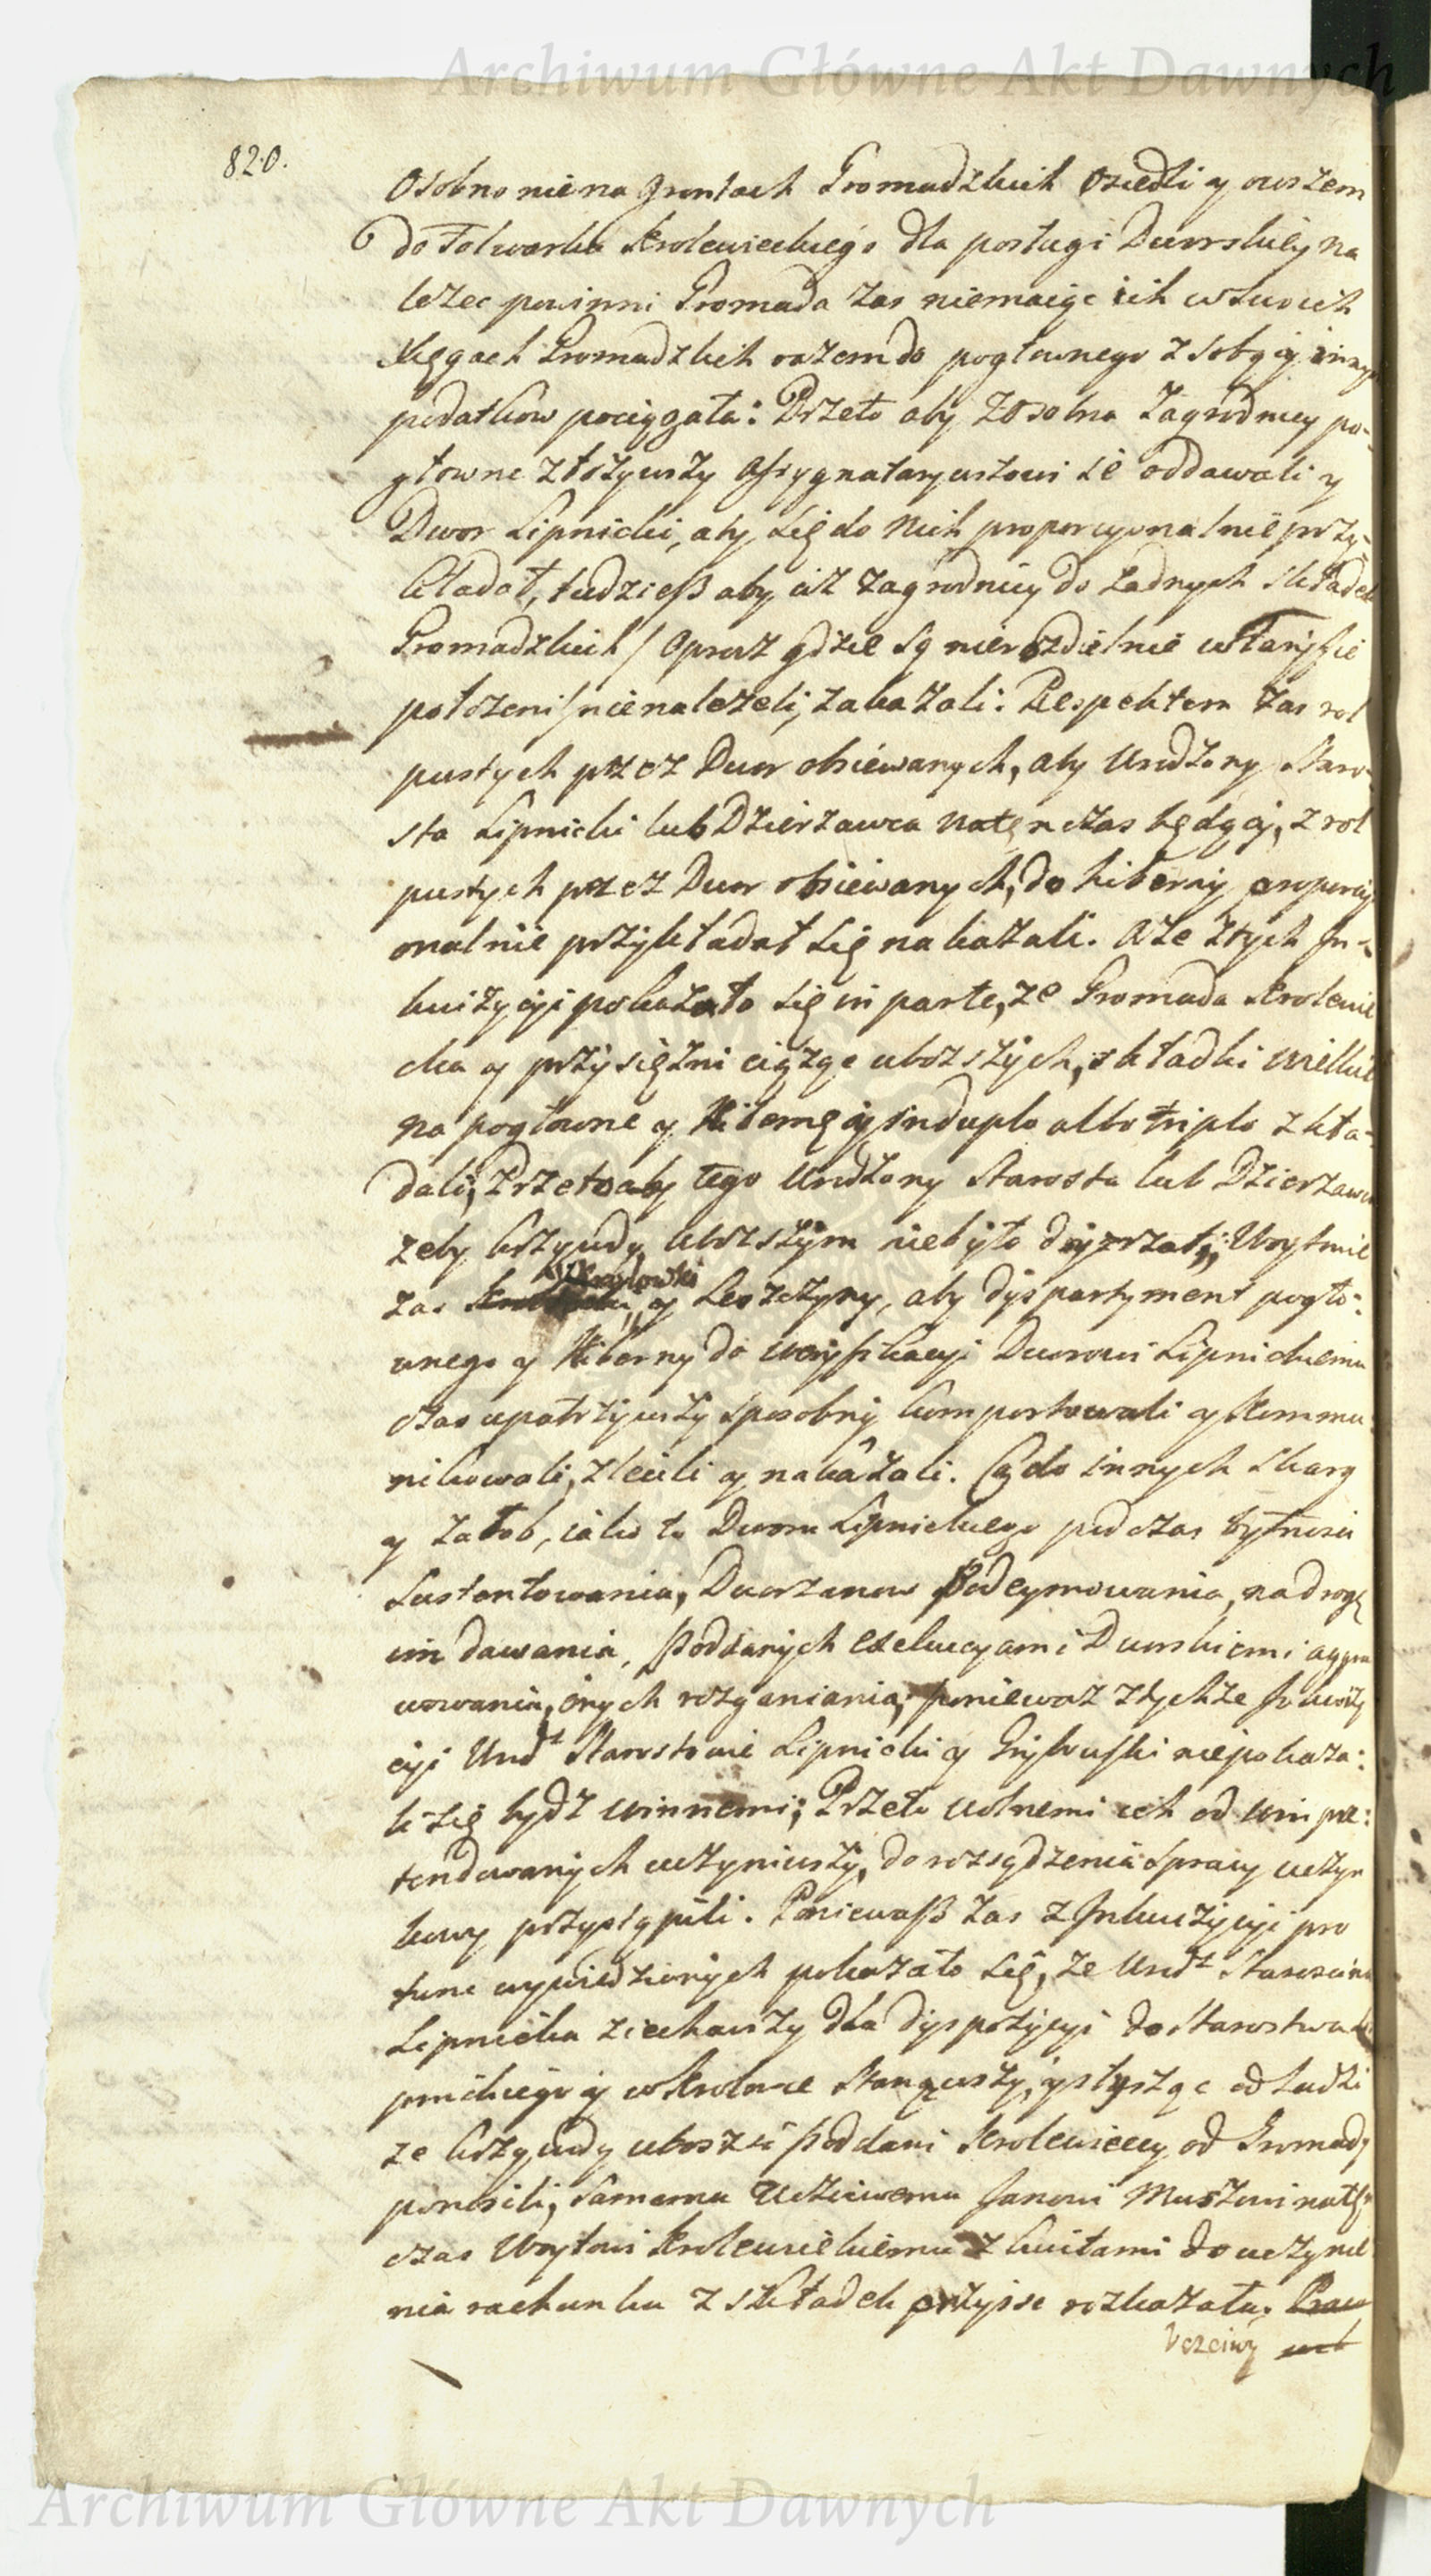 Archiwum Główne Akt Dawnych
820.
Osobno nie na gruntach Gromadzkich Osiedli y owszem
do Folwarku Krolewieckiego dla posługi Dworskiey na
leżec powinni Gromada zas niemaiąc ich w swoich
Xięgach Gromadzkich razem do pogłownego z sobą y innych
podatkow pociągała: Przeto aby zosobna Zagrodnicy po-
głowne złożywszy Assygnataryuszowi ie oddawali y
Dwor Lipnicki, aby się do nich proporcyonalnie przy-
kładał, tudzieß aby ciż Zagrodnicy do żadnych składek
Gromadzkich / oprocz gdzie są nierozdzielnie w Taryfie
położeni / nienależeli, zakazali: Respektem zas rol
pustych przez Dwor obsiewanych, aby Urodzony Staro-
sta Lipnicki lub Dzierżawca natenczas będący, z rol
pustych przez Dwor obsiewanych, do hiberny proporcy
onalnie przykładał się nakazali. A że z tych In-
kwizycyi pokazało się in parte, że Gromada Krolewie
cka y przysiężni ciążąc ubozszych, składki wielkie
na pogłowne y Hibernę y induplo albo triplo zkła-
dali, Przeto aby tego Urodzony Starosta lub Dzierzawca
zeby krzywdy ubozszym niebyło doyzrzał; Woytowie
zas y Leszczyny, aby dyspartyment pogło-
wnego y Hiberny do weryfikacyi Dworowi Lipnickiemu
czas upatrzywszy sposobny komportowali y kommu
nikowali, zlecili y nakazali. Co do innych skarg
y żałob, iako to Dworu Lipnickiego podczas bytnosci
Sustentowania, Dworzanow Podeymowania, na drogę
im dawania, Poddanych exekucyami Dworskiemi aggra
wowania, onych rozganiania, ponieważ z tychże Inkwizy
cyi Urodz Starostowie Lipnicki y niepokaza:
li się bydź winnemi; Przeto wolnemi ich od win pre:
tendowanych uczyniwszy, do rozsądzenia sprawy uczyn
kowy przystąpili. Poniewaß zas z Inkwizycyi pro
tunc wywiedzionych pokazało się, że Urodz Starościna
Lipnicka ziechawszy dla dyspozycyi do Starostwa Li
pnickiego y w Krolowce stanąwszy, y słysząc od ludzi
ze krzywdy ubozsi Poddani Krolewieccy od Gromady
ponosili, Samemu Uczciwemu Janowi Muszowi naten
czas Woytowi Krolewieckiemu z kwitami do uczynie
nia rachunku z składek przyjsc rozkazała.
Uczciwy
Archiwum Główne Akt Dawnych